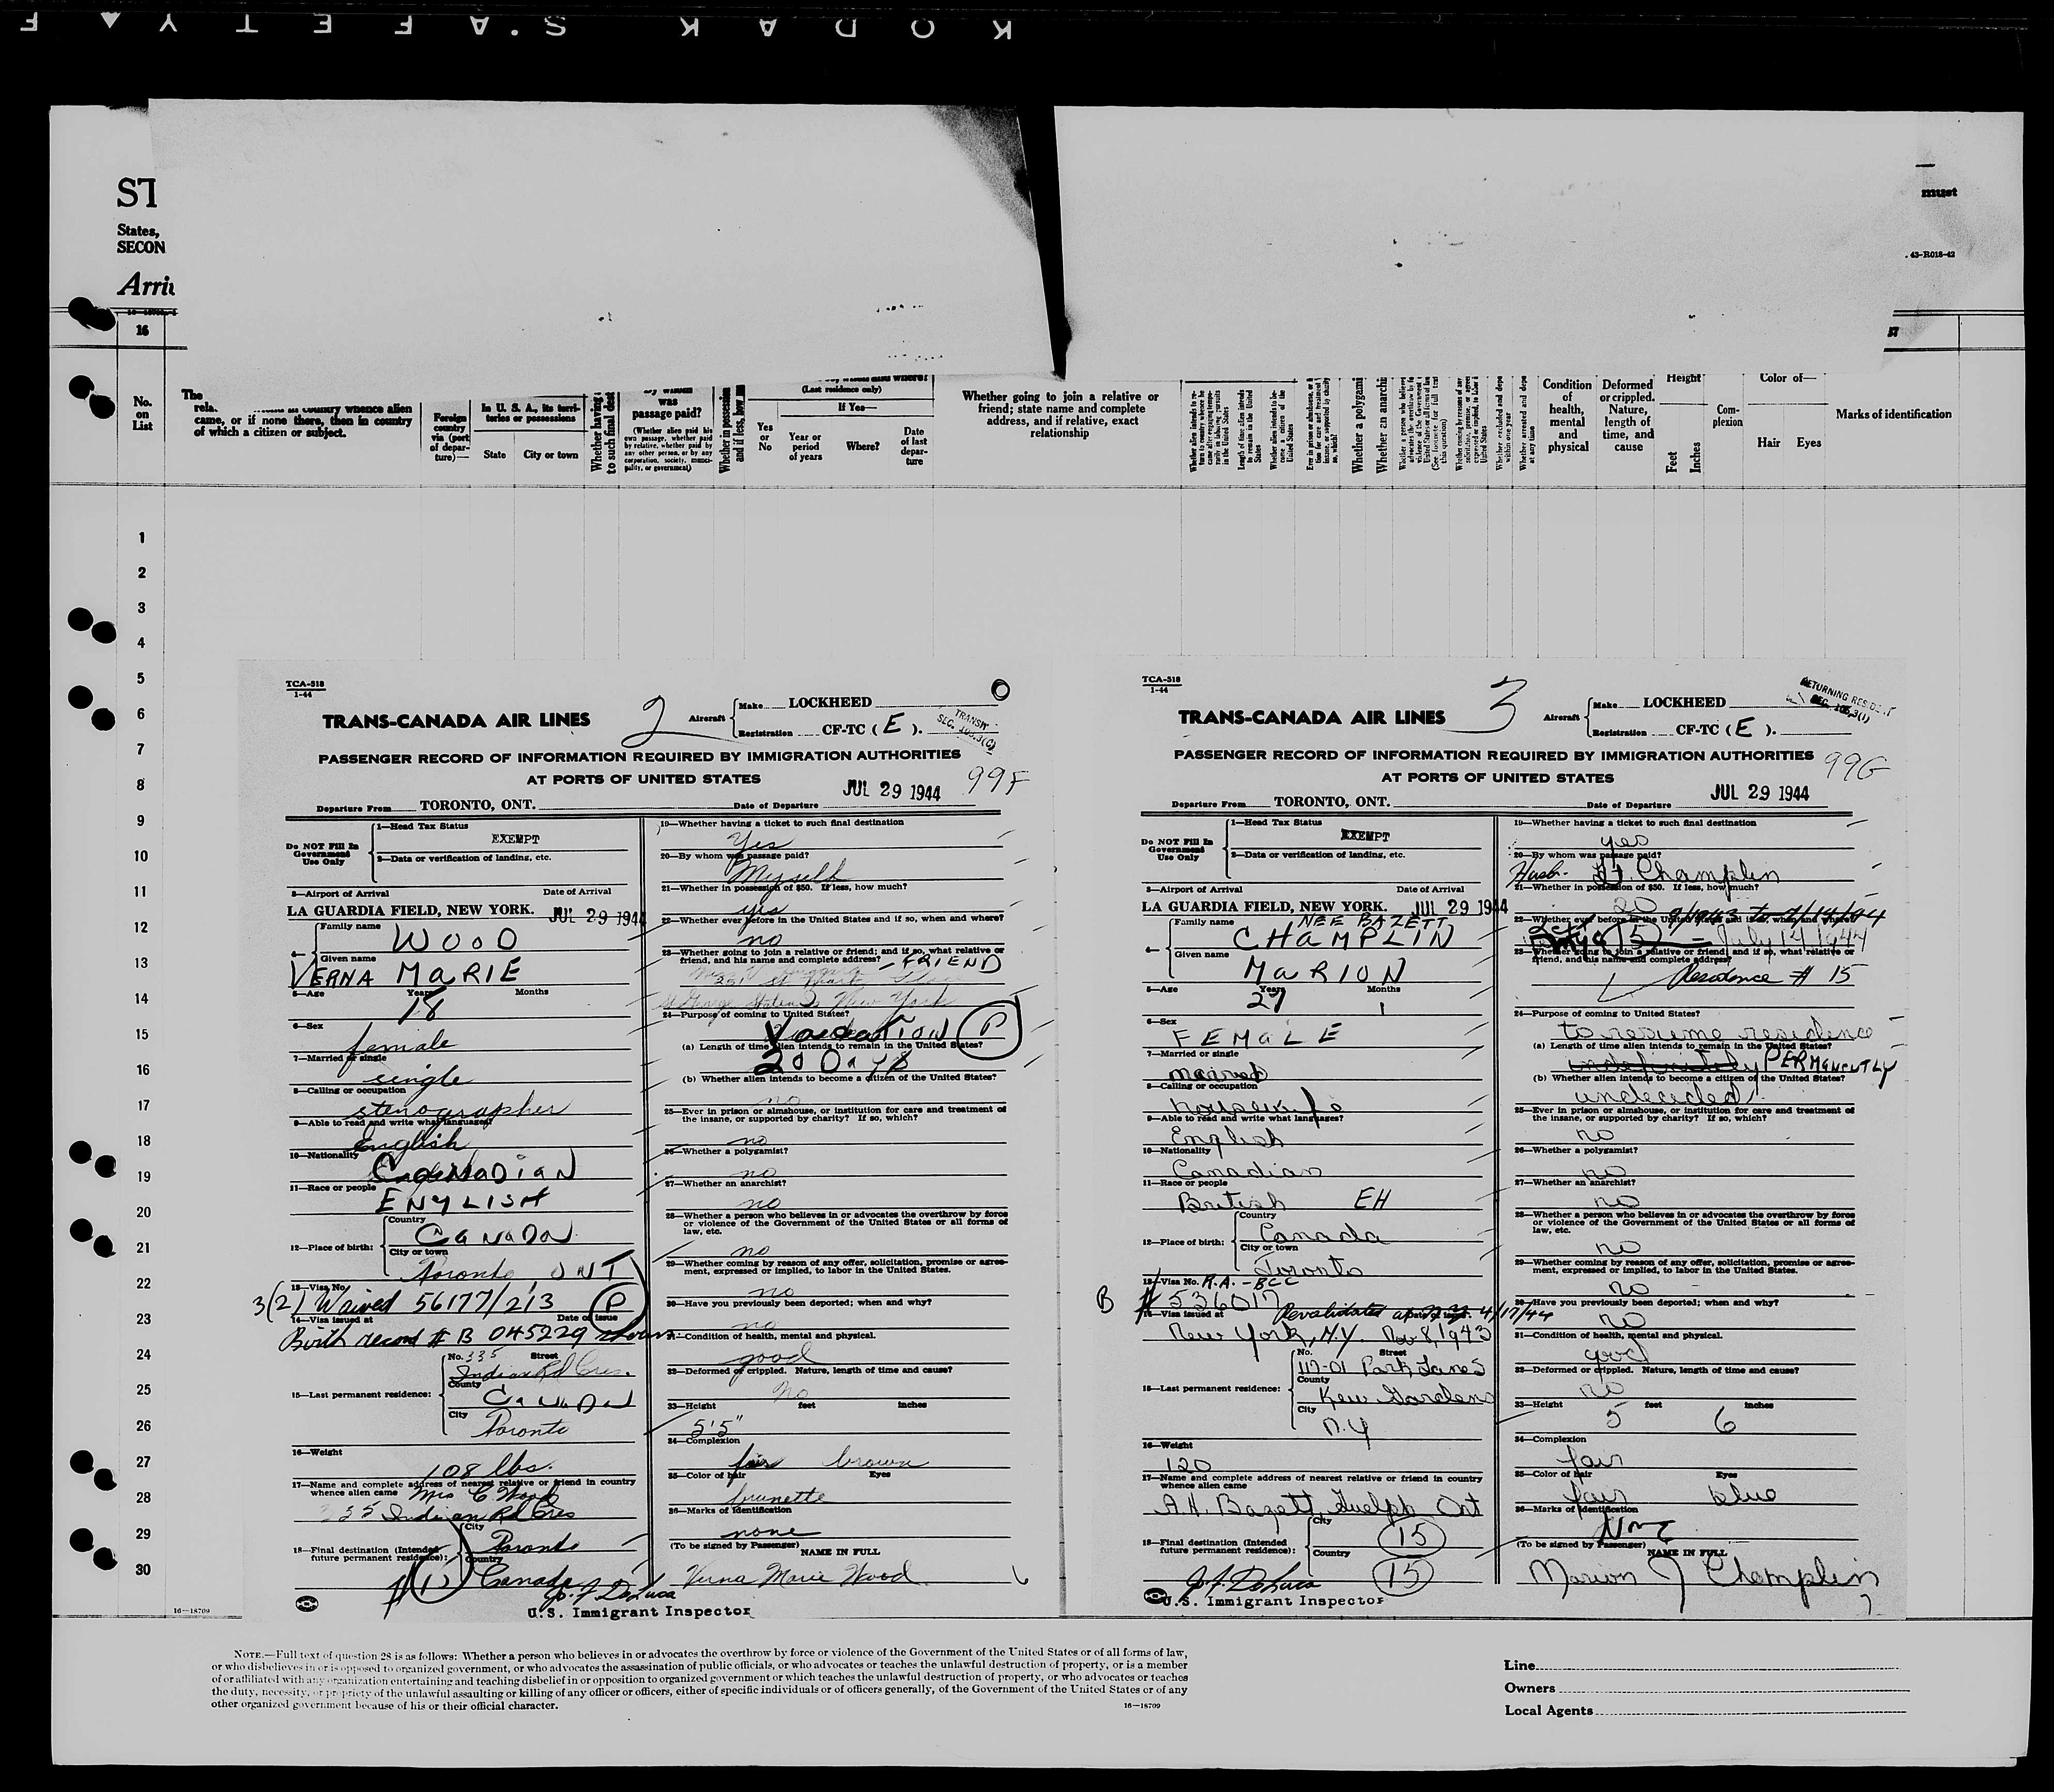 KODAK S.AFETY F
ST
States,
SECON
Arriv
must
43-R018-42
16
No.
on
List
The
rela
came, or if none there, then in country
of which a citizen or subject.
Foreign
country
via (port
of depar-
ture)—
In U. S. A., its terri-
tories or possessions
State City or town
Whether having
to such final dest
By whom
was
passage paid?
(Whether alien paid his
own passage, whether paid
by relative, whether paid by
any other person, or by any
corporation, society, munici-
pality, or government)
Whether in possession
and if less, how
(Last residence only)
If Yes—
Yes
or
No
Year or
period
of years
Where?
Date
of last
depar-
ture
Whether going to join a relative or
friend; state name and complete
address, and if relative, exact
relationship
Whether a polygami
Whether an anarchi
Condition
of
health,
mental
and
physical
Deformed
or crippled.
Nature,
length of
time, and
cause
Height
Feet
Inches
Com-
plexion
Color of—
Hair Eyes
Marks of identification
1
2
3
4
5
6
7
8
9
10
11
12
13
14
15
16
17
18
19
20
21
22
23
24
25
26
27
28
29
30
16—18709
TCA-518
1-44
TRANS-CANADA AIR LINES
2
Aircraft
Make LOCKHEED
Registration CF-TC ( E ).
TRANSIT
SEC. 105.3(C)
PASSENGER RECORD OF INFORMATION REQUIRED BY IMMIGRATION AUTHORITIES
AT PORTS OF UNITED STATES
99F
Departure From TORONTO, ONT. Date of Departure JUL 29 1944
Do NOT Fill In
Government
Use Only
1—Head Tax Status
EXEMPT
2—Data or verification of landing, etc.
3—Airport of Arrival Date of Arrival
LA GUARDIA FIELD, NEW YORK. JUL 29 1944
4—
Family name
WOOD
Given name
VERNA MARIE
5—Age Years Months
18
6—Sex
female
7—Married or single
single
8—Calling or occupation
stenographer
9—Able to read and write what languages?
English
10—Nationality
CANADIAN
11—Race or people
ENGLISH
12—Place of birth:
Country
CANADA
City or town
Toronto ONT
13—Visa No.
3(2) Waived 56177/213 (P)
14—Visa issued at Date of issue
Birth record # B 045229 shown
15—Last permanent residence:
No. 335 Street
Indian Rd Cres.
County
CANADA
City
Toronto
16—Weight
108 lbs.
17—Name and complete address of nearest relative or friend in country
whence alien came Mrs C. Wood
335 Indian Rd Cres
18—Final destination (Intended
future permanent residence):
City
Toronto
Country
Canada
U.S. Immigrant Inspector
19—Whether having a ticket to such final destination
Yes
20—By whom was passage paid?
Myself
21—Whether in possession of $50. If less, how much?
yes
22—Whether ever before in the United States and if so, when and where?
no
23—Whether going to join a relative or friend; and if so, what relative or
friend, and his name and complete address? - FRIEND
New York
24—Purpose of coming to United States?
Vacation (P)
(a) Length of time alien intends to remain in the United States?
20 Days
(b) Whether alien intends to become a citizen of the United States?
no
25—Ever in prison or almshouse, or institution for care and treatment of
the insane, or supported by charity? If so, which?
no
26—Whether a polygamist?
no
27—Whether an anarchist?
no
28—Whether a person who believes in or advocates the overthrow by force
or violence of the Government of the United States or all forms of
law, etc.
no
29—Whether coming by reason of any offer, solicitation, promise or agree-
ment, expressed or implied, to labor in the United States.
no
30—Have you previously been deported; when and why?
no
31—Condition of health, mental and physical.
good
32—Deformed or crippled. Nature, length of time and cause?
No
33—Height feet inches
5'5"
34—Complexion
fair brown
35—Color of hair Eyes
brunette
36—Marks of Identification
none
(To be signed by Passenger) NAME IN FULL
Verna Marie Wood
TCA-518
1-44
TRANS-CANADA AIR LINES
3
Aircraft
Make LOCKHEED
Registration CF-TC ( E ).
RETURNING RESIDENT
SEC. 105.3(1)
PASSENGER RECORD OF INFORMATION REQUIRED BY IMMIGRATION AUTHORITIES
AT PORTS OF UNITED STATES
99G
Departure From TORONTO, ONT. Date of Departure JUL 29 1944
Do NOT Fill In
Government
Use Only
1—Head Tax Status
EXEMPT
2—Data or verification of landing, etc.
3—Airport of Arrival Date of Arrival
LA GUARDIA FIELD, NEW YORK. JUL 29 1944
4—
Family name NEE BAZETT
CHAMPLIN
Given name
MARION
5—Age Years Months
27 1
6—Sex
FEMALE
7—Married or single
married
8—Calling or occupation
housewife
9—Able to read and write what languages?
English
10—Nationality
Canadian
11—Race or people
British EH
12—Place of birth:
Country
Canada
City or town
Toronto
13—Visa No. R.A. - BCC
B # 536017
Revalidated 4/17/44
14—Visa issued at
New York, N.Y. Nov 8, 1943
15—Last permanent residence:
No. Street
117-01 Park Lanes
County
Kew Gardens
City
N.Y
16—Weight
120
17—Name and complete address of nearest relative or friend in country
whence alien came
A.H. Bazett, Guelph Ont
18—Final destination (Intended
future permanent residence):
City
(15)
Country
(15)
U.S. Immigrant Inspector
19—Whether having a ticket to such final destination
yes
20—By whom was passage paid?
Husb. Lt. Champlin
21—Whether in possession of $50. If less, how much?
20
22—Whether ever before in the United States and if so, when and where?
(15) - July 14 1944
23—Whether going to join a relative or friend; and if so, what relative or
friend, and his name and complete address?
Residence # 15
24—Purpose of coming to United States?
to resume residence
(a) Length of time alien intends to remain in the United States?
indefinitely PERMANENTLY
(b) Whether alien intends to become a citizen of the United States?
undecided
25—Ever in prison or almshouse, or institution for care and treatment of
the insane, or supported by charity? If so, which?
no
26—Whether a polygamist?
no
27—Whether an anarchist?
no
28—Whether a person who believes in or advocates the overthrow by force
or violence of the Government of the United States or all forms of
law, etc.
no
29—Whether coming by reason of any offer, solicitation, promise or agree-
ment, expressed or implied, to labor in the United States.
no
30—Have you previously been deported; when and why?
no
31—Condition of health, mental and physical.
good
32—Deformed or crippled. Nature, length of time and cause?
no
33—Height feet inches
5 6
34—Complexion
fair
35—Color of hair Eyes
fair blue
36—Marks of Identification
None
(To be signed by Passenger) NAME IN FULL
Marion J Champlin
NOTE.—Full text of question 28 is as follows: Whether a person who believes in or advocates the overthrow by force or violence of the Government of the United States or of all forms of law,
or who disbelieves in or is opposed to organized government, or who advocates the assassination of public officials, or who advocates or teaches the unlawful destruction of property, or is a member
of or affiliated with any organization entertaining and teaching disbelief in or opposition to organized government or which teaches the unlawful destruction of property, or who advocates or teaches
the duty, necessity, or propriety of the unlawful assaulting or killing of any officer or officers, either of specific individuals or of officers generally, of the Government of the United States or of any
other organized government because of his or their official character.
16—18709
Line
Owners
Local Agents